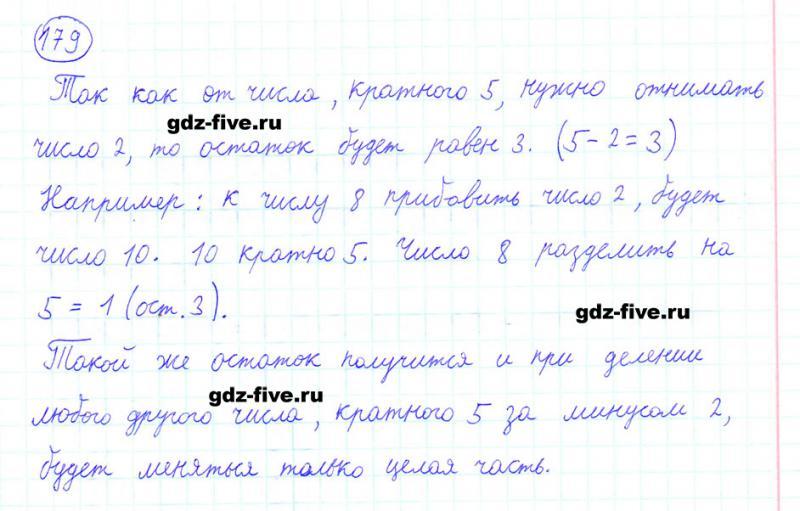 179
Так как от числа, кратного 5, нужно отнимать
gdz-five.ru
число 2, то остаток будет равен 3. (5-2=3)
Например: к числу 8 прибавить число 2, будет
число 10. 10 кратно 5. Число 8 разделить на
5 = 1 (ост. 3).
gdz-five.ru
Такой же остаток получится и при делении
gdz-five.ru
любого другого числа, кратного 5 за минусом 2,
будет меняться только целая часть.